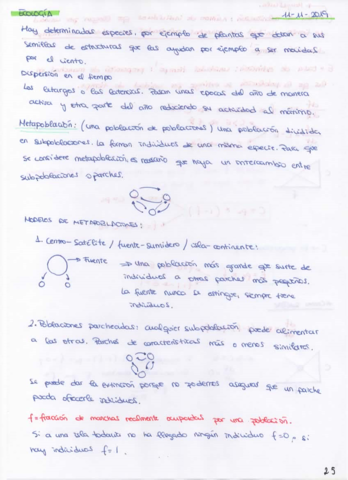 ECOLOGÍA 11-11-2019
Hay determinadas especies, por ejemplo de plantas que dotan a sus
semillas de estructuras que las ayudan por ejemplo a ser movidas
por el viento.
Dispersión en el tiempo
Los letargos o las latencias. Pasan unas épocas del año de manera
activa y otra parte del año reduciendo su actividad al máximo.
Metapoblación: (una población de poblaciones) una población dividida
en subpoblaciones. La forman individuos de una misma especie. Para que
se considere metapoblación es necesario que haya un intercambio entre
subpoblaciones o parches.
MODELOS DE METAPOBLACIONES:
1. Centro-Satélite / fuente-sumidero / isla-continente:
Fuente
⇒ Una población más grande que surte de
individuos a otros parches más pequeños.
La fuente nunca la extingue, siempre tiene
individuos.
2. Poblaciones parcheadas: cualquier subpoblación puede alimentar
a las otras. Parches de características más o menos similares.
Se puede dar la extinción porque no podemos asegurar que un parche
pueda ofrecerle individuos.
f = fracción de manchas realmente ocupadas por una población.
Si a una isla todavía no ha llegado ningún individuo f=0, si
hay individuos f=1.
25